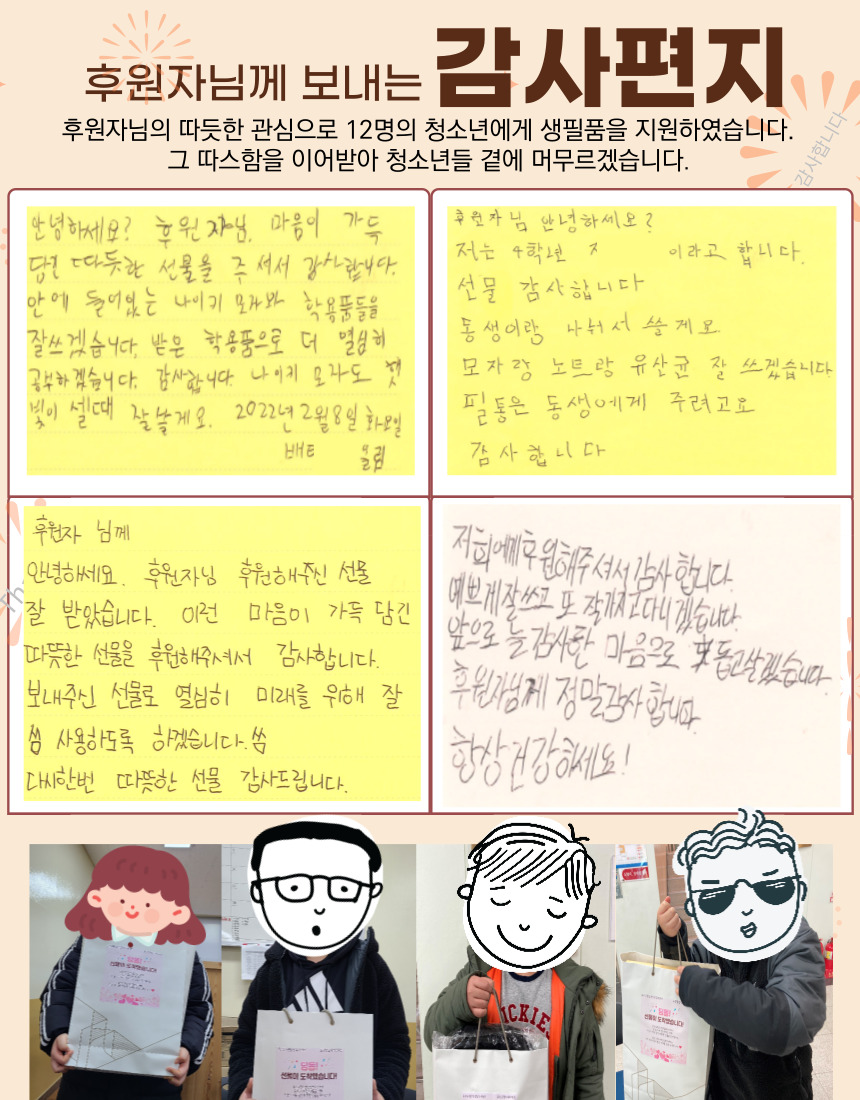 후원자님께 보내는 감사편지
후원자님의 따듯한 관심으로 12명의 청소년에게 생필품을 지원하였습니다.
그 따스함을 이어받아 청소년들 곁에 머무르겠습니다.
감사합니다
안녕하세요? 후원자님. 마음이 가득
담긴 따듯한 선물을 주셔서 감사합니다.
안에 들어있는 나이키 모자와 학용품들을
잘쓰겠습니다. 받은 학용품으로 더 열심히
공부하겠습니다. 감사합니다. 나이키 모자도 햇
빛이 셀때 잘쓸게요. 2022년 2월 8일 화요일
올림
후원자님 안녕하세요?
저는 4학년 이라고 합니다.
선물 감사합니다
동생이랑 나눠서 쓸게요
모자랑 노트랑 유산균 잘 쓰겠습니다
필통은 동생에게 주려고요
감사합니다
후원자 님께
안녕하세요. 후원자님 후원해주신 선물
잘 받았습니다. 이런 마음이 가득 담긴
따뜻한 선물을 후원해주셔서 감사합니다.
보내주신 선물로 열심히 미래를 위해 잘
사용하도록 하겠습니다.
다시한번 따뜻한 선물 감사드립니다.
저희에게후원해주셔서감사합니다.
예쁘게잘쓰고 또 잘가지고다니겠습니다.
앞으로 늘감사한 마음으로 돕고살겠습니다.
후원자님께 정말감사합니다.
항상건강하세요!
선물이 도착했습니다!
DICKIES
선물이 도착했습니다!